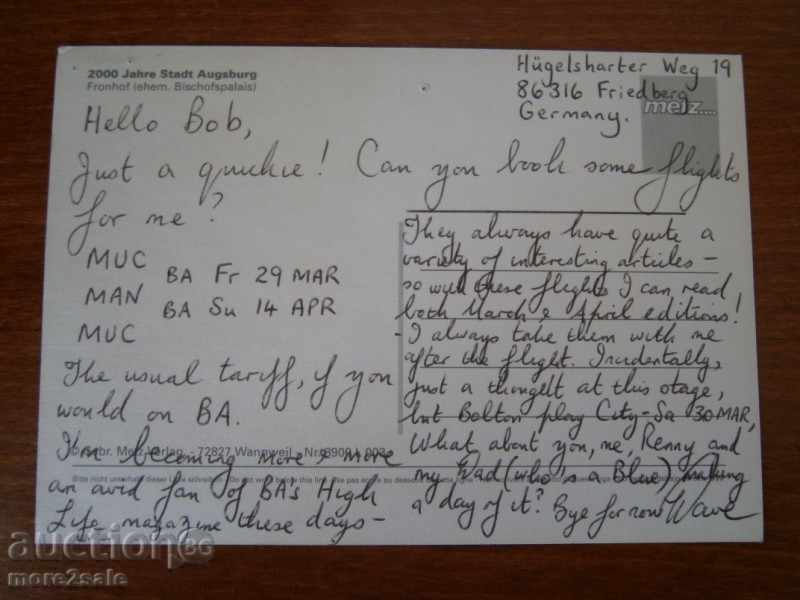 2000 Jahre Stadt Augsburg
Fronhof (ehem. Bischofspalais)
Hügelsharter Weg 19
86316 Friedberg
Germany.
metz....
Hello Bob,
Just a quickie! Can you book some flights
for me?
MUC
BA Fr 29 MAR
MAN
BA Su 14 APR
MUC
The usual tariff, if you
would on BA.
I'm becoming more & more
an avid fan of BA's High
Life magazine these days –
They always have quite a
variety of interesting articles –
so with these flights I can read
both March & April editions!
- I always take them with me
after the flight. Incidentally,
just a thought at this stage,
but Bolton play City - Sa 30 MAR,
What about you, me, Renny and
my Dad (who's a Blue) making
a day of it? Bye for now
Verlag 72827 Wannweil
Bitte nicht unterhalb dieser
auction86
more2sale